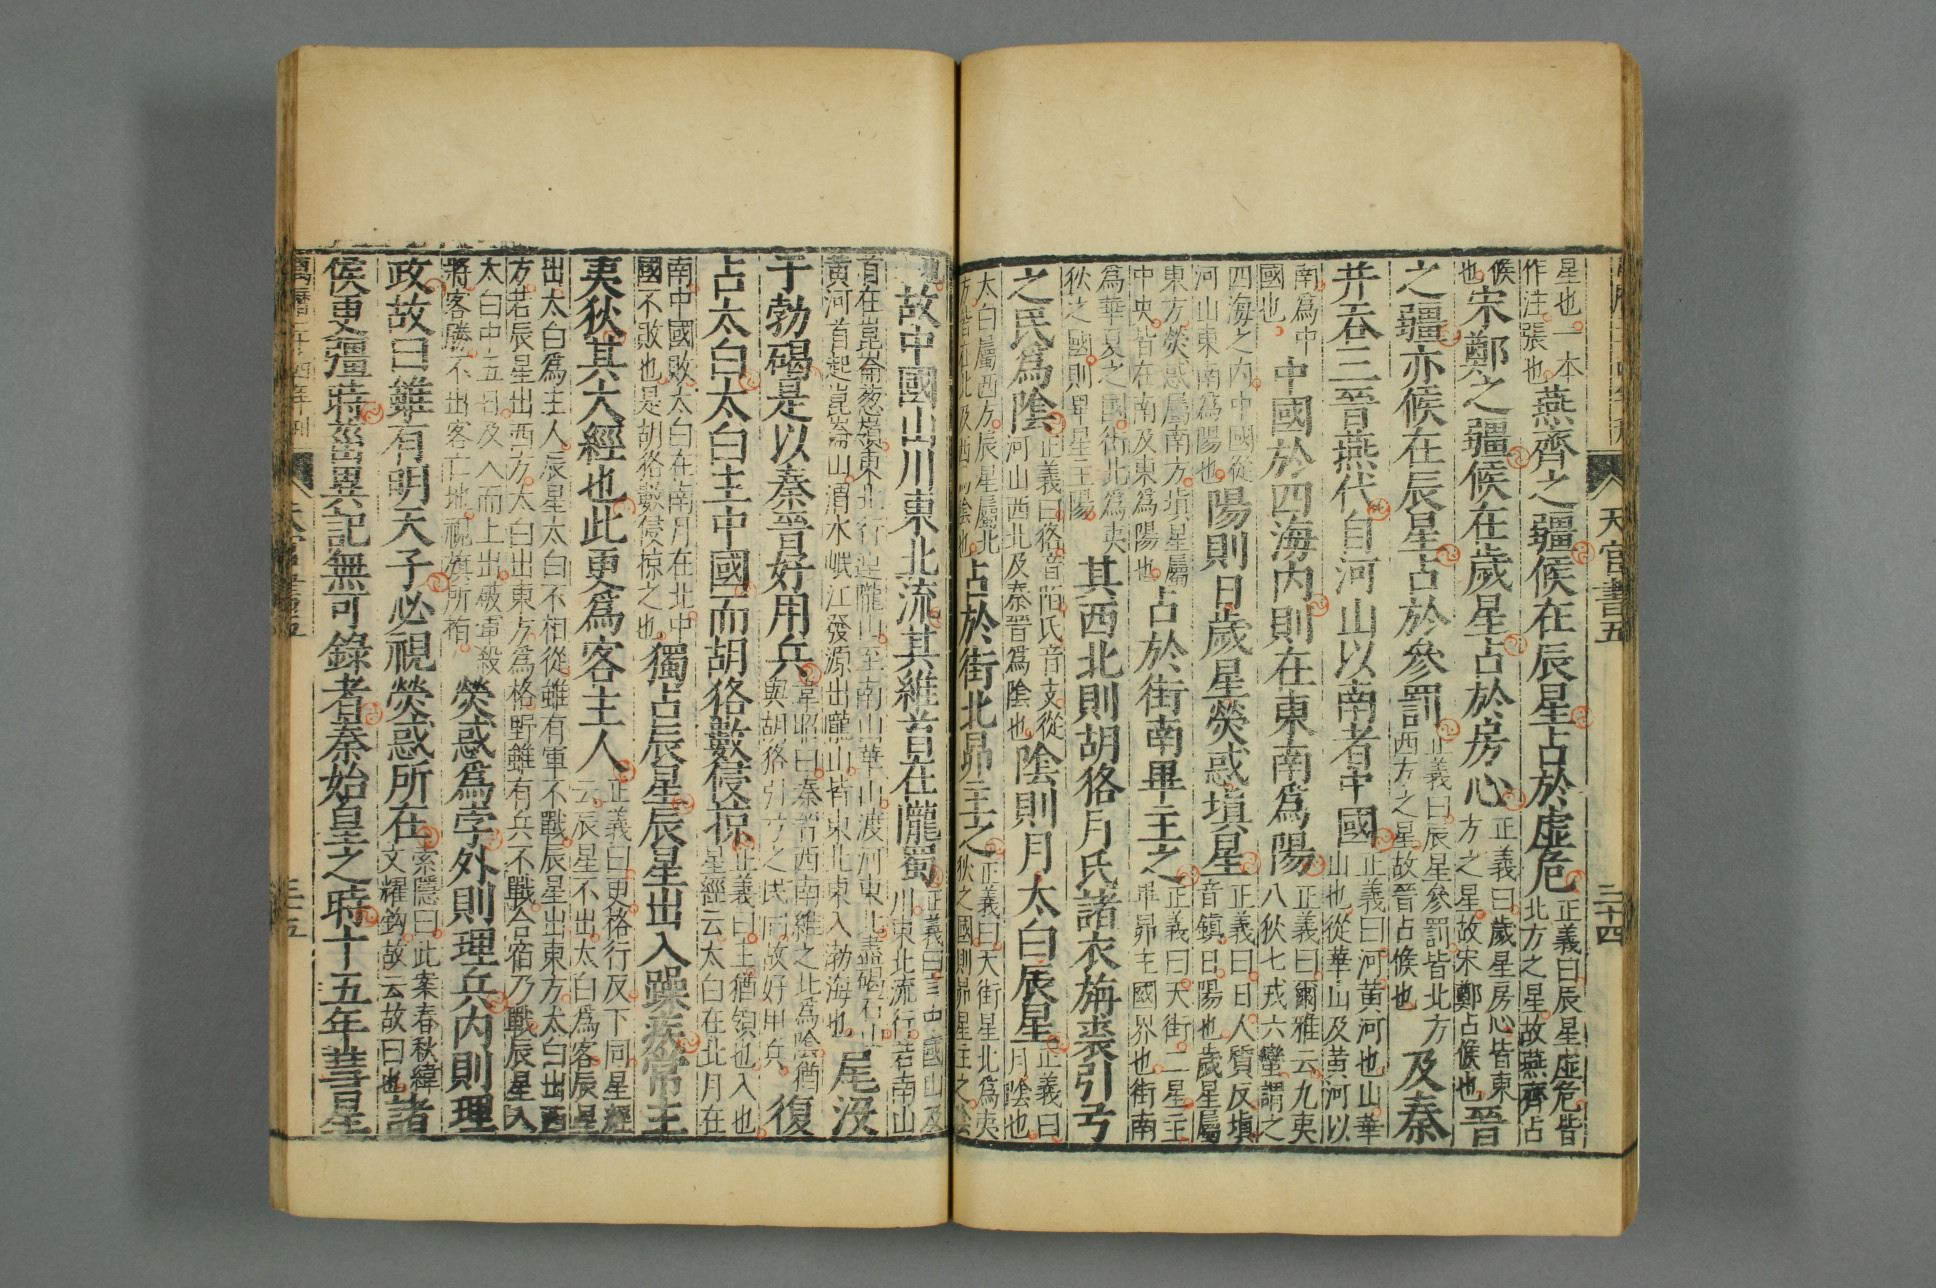 天官書五 三十四
星也一本作注張也燕齊之疆候在辰星占於虛危正義曰辰星虛危皆北方之星故燕齊占
候也宋鄭之疆候在歲星占於房心正義曰歲星房心皆東方之星故宋鄭占候也晉
之疆亦候在辰星占於參罰正義曰辰星參罰皆北方西方之星故晉占候也及秦
并吞三晉燕代自河山以南者中國正義曰河黃河也山華山也從華山及黃河以
南爲中國也中國於四海內則在東南爲陽正義曰爾雅云九夷八狄七戎六蠻謂之
四海之內中國從河山東南爲陽也陽則日歲星熒惑塡星正義曰日人質反塡音鎮日陽也歲星屬
東方熒惑屬南方塡星屬中央皆在南及東爲陽也占於街南畢主之正義曰天街二星主畢昴主國界也街南
爲華夏之國街北爲夷狄之國則畢星主陽其西北則胡狢月氏諸衣旃裘引弓
之民爲陰正義曰狢音陌氏音支從河山西北及秦晉爲陰也陰則月太白辰星正義曰月陰也
太白屬西方辰星屬北方皆在北及西爲陰也占於街北昴主之正義曰天街星北爲夷狄之國則昴星主之陰
也故中國山川東北流其維首在隴蜀正義曰言中國山及川東北流行若南山
首在崑崙葱嶺東北行連隴山至南山華山渡河東北盡碣石山黃河首起崑崙山渭水岷江發源出隴山皆東北東入渤海也尾沒
于勃碣是以秦晉好用兵韋昭曰秦晉西南維之北爲陰猶與胡狢引弓之民同故好用兵復
占太白太白主中國而胡狢數侵掠正義曰主猶領也入也星經云太白在北月在
南中國敗太白在南月在北中國不敗也是胡狢數侵掠之也獨占辰星辰星出入躁疾常主
夷狄其大經也此更爲客主人正義曰更格行反下同星經云辰星不出太白爲客辰星
出太白爲主人辰星太白不相從雖有軍不戰辰星出東方太白出西方若辰星出西方太白出東方爲格野雖有兵不戰合宿乃戰辰星入
太白中五日及入而上出破軍殺將客勝不出客亡地視旗所指熒惑爲孛外則理兵內則理
政故曰雖有明天子必視熒惑所在索隱曰此案春秋緯文耀鈎故云故曰也諸
侯更彊時菑異記無可錄者秦始皇之時十五年彗星
萬曆二十四年刊 天官書五 三十五